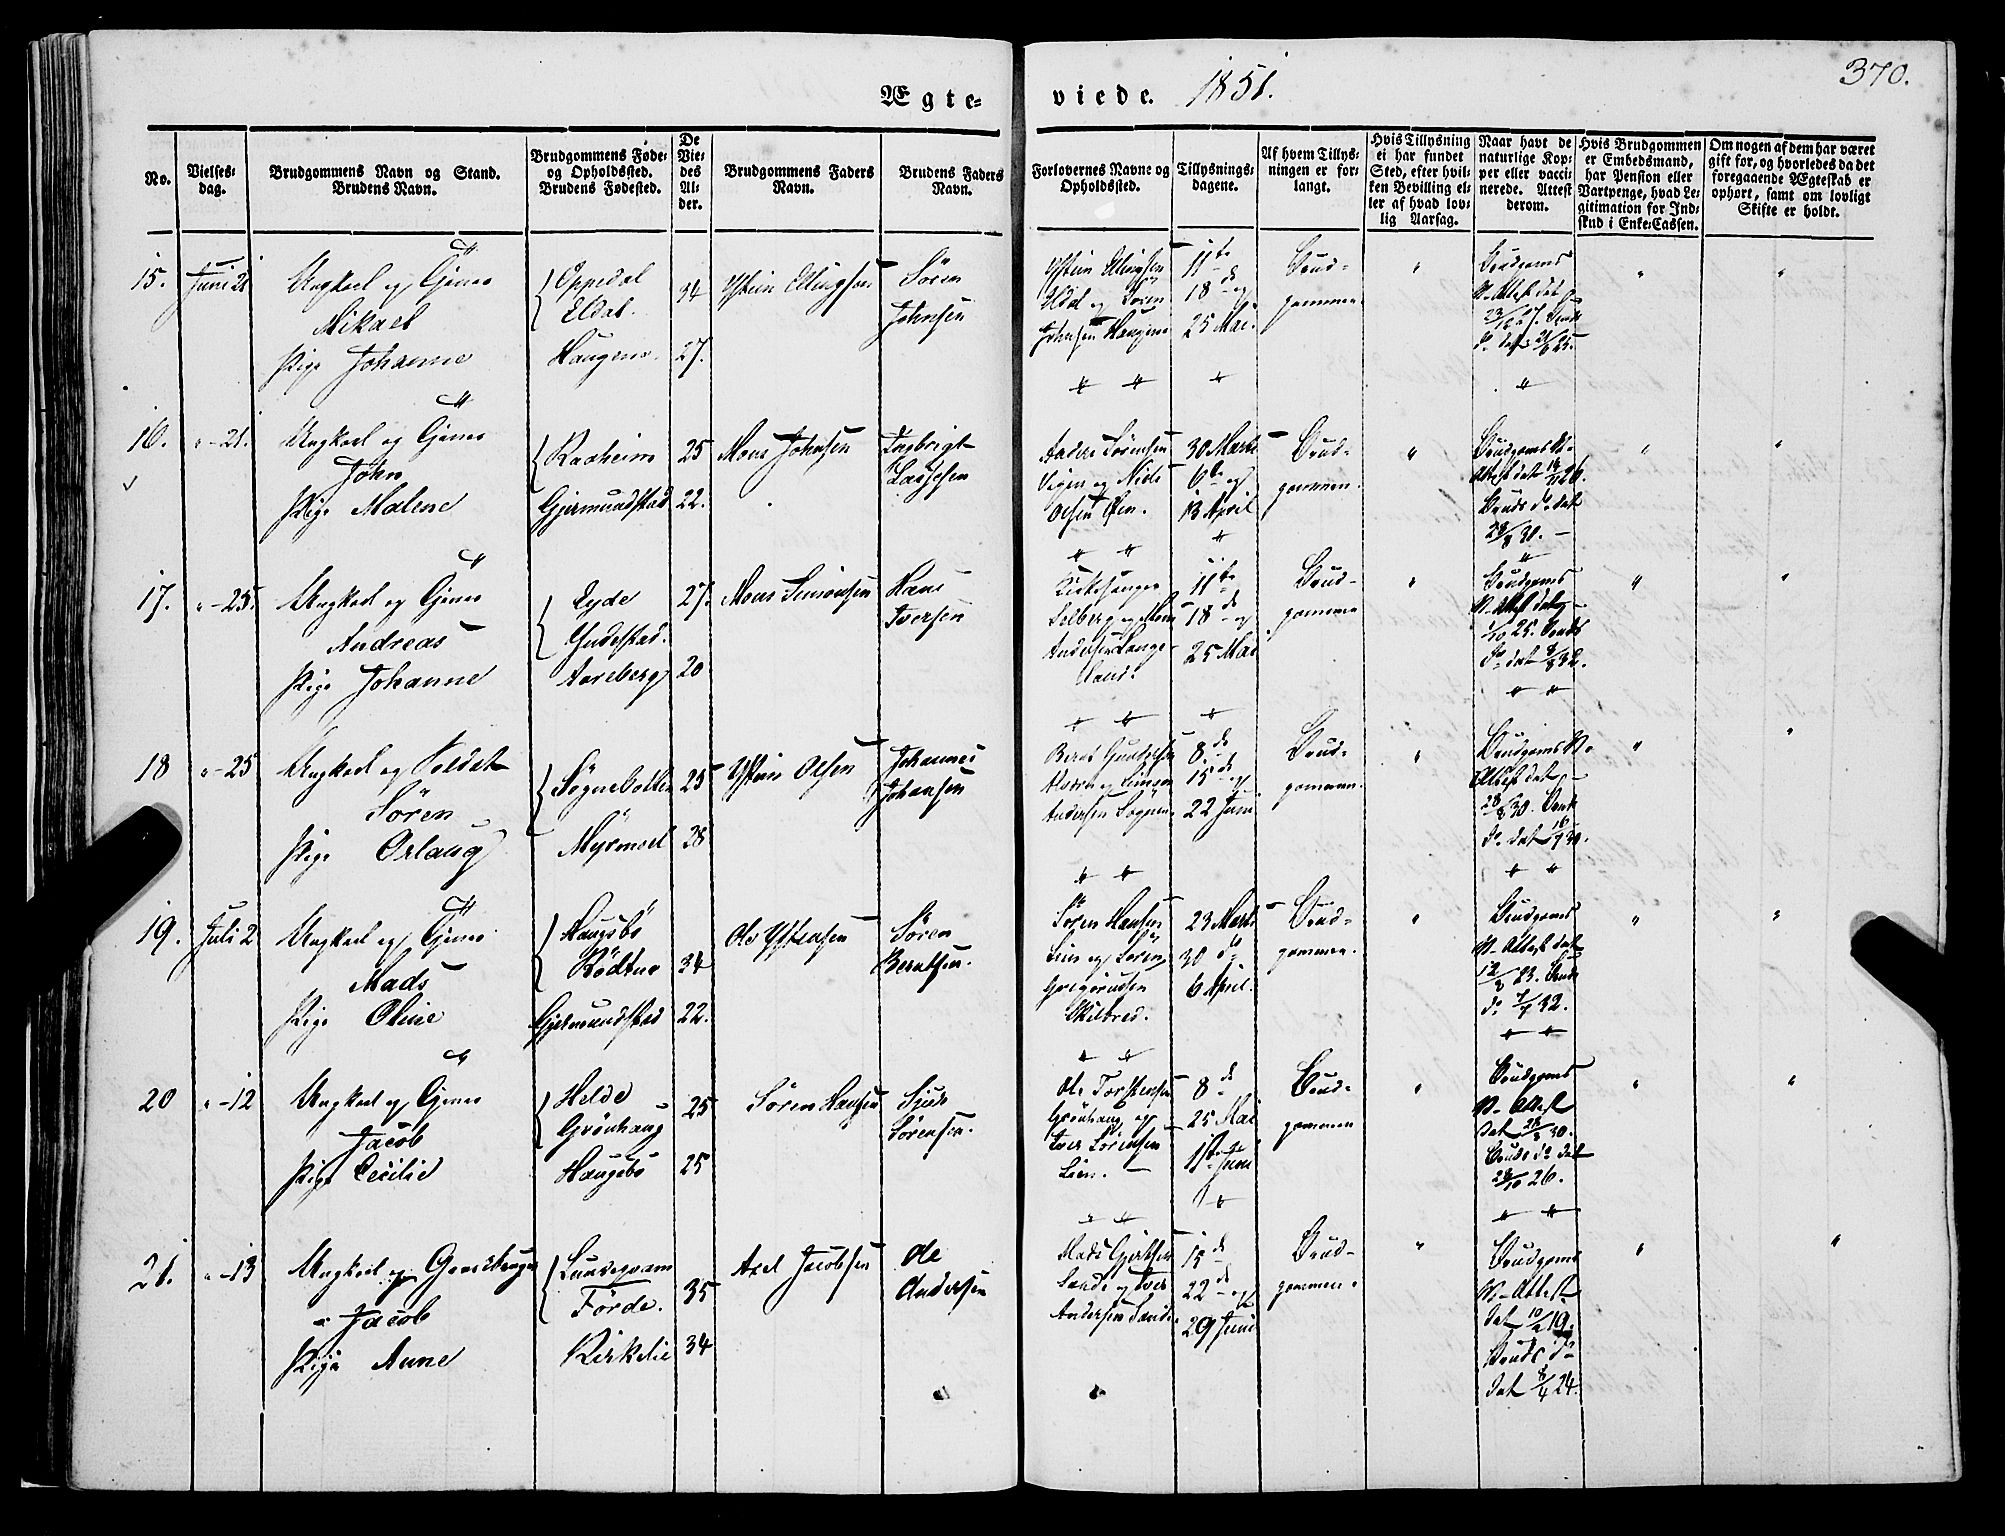 Ægte-
viede. 1851.
370.
No.
Vielses-
dag.
Brudgommens Navn og Stand.
Brudens Navn.
Brudgommens Føde-
og Opholdssted.
Brudens Fødested.
De
Vie-
des
Al-
der.
Brudgommens Faders
Navn.
Brudens Faders
Navn.
Forlovernes Navne og
Opholdssted.
Tillysnings-
dagene.
Af hvem Tillys-
ningen er for-
langt.
Hvis Tillysning
ei har fundet
Sted, efter hvil-
ken Bevilling el-
ler af hvad lov-
lig Aarsag.
Naar havt de
naturlige Kop-
per eller vacci-
nerede. Attest
derom.
Hvis Brudgommen
er Embedsmand,
har Pension eller
Vartpenge, hvad Le-
gitimation for Ind-
skud i Enke-Cassen.
Om nogen af dem har været
gift før, og hvorledes da det
foregaaende Ægteskab er
ophørt, samt om lovligt
Skifte er holdt.
15. Juni 21
Ungkarl og
Mikael
Pige Johanne
Oppedal
Eldal.
Haugene.
34
27.
Ystein Ellingsen
Sören
Johnsen
Ystein Ellingsen
Eldal og Sören
Johnsen Haugene
11te
18de og
25 Mai.
Brud-
gommen.
Brudgoms
V. Attest dat
16. " - 21.
Ungkarl og
John
Pige Malene
Raaheim
Gjermundstad
25
22.
Mons Johnsen
Ingbrigt
Lassesen
Anders Sörensen
og Niels
Olsen
30 Marts
6te og
13 April
Brud-
gommen.
Brudgoms V.
Attest dat
Bruds do dat
28/8 30.
17. " - 25.
Ungkarl og
Andreas
Pige Johanne
Eyde
Yndestad.
Aareberg
27.
20
Mons Simonsen
Hans
Iversen
Kirkesanger
Selberg og
Andersen Lange-
land.
11te
18de og
25 Mai
Brud-
gommen
Brudgoms
V. Attest dat
1/10 25. Bruds
do dat 8/8 32.
18 " - 25
Ungkarl og Soldat
Sören
Pige Orlaug
Sögnebotten
Myrmoel
25
28
Ystein Olsen
Johannes
Johansen
og Simon
Andersen
8de
15de og
22 Juni
Brud-
gommen.
Brudgoms V.
Attest dat
28/8 30. Bruds
do dat
19. Juli 2
Ungkarl og
Mads
Pige Oline
Haugsbö
Rödtue
Gjermundstad
34
22.
Ole Ystensen
Sören
Berntsen.
Sören Hansen
Lien og Sören
Gregoriusen
Skilbred.
23 Marts
30 do
6 April.
Brud-
gommen.
Brudgoms
V. Attest dat
23. Bruds
do 32.
20 " - 12
Ungkarl og
Jacob
Pige Cecilie
Helde
Grönhaug
Haugsbö
25
25
Sören Hansen
Sjur
Sörensen.
Ole Torstensen
Grönhaug og
Iver Sörensen
Lien.
8de
25 Mai
1ste Juni
Brud-
gommen
Brudgoms
V. Attest
dat 30.
Bruds do dat
26.
21. " - 13
Ungkarl og
Jacob
Pige Anne
Förde.
Kirkelie
35
34
Axel Jacobsen
Ole
Andersen
Mads Gjertsen
Sande og Iver
Andersen Sande
15de
22de og
29 Juni
Brud-
gommen.
Brudgoms
V. Attest
dat 19.
Bruds do
dat 8/4 24.